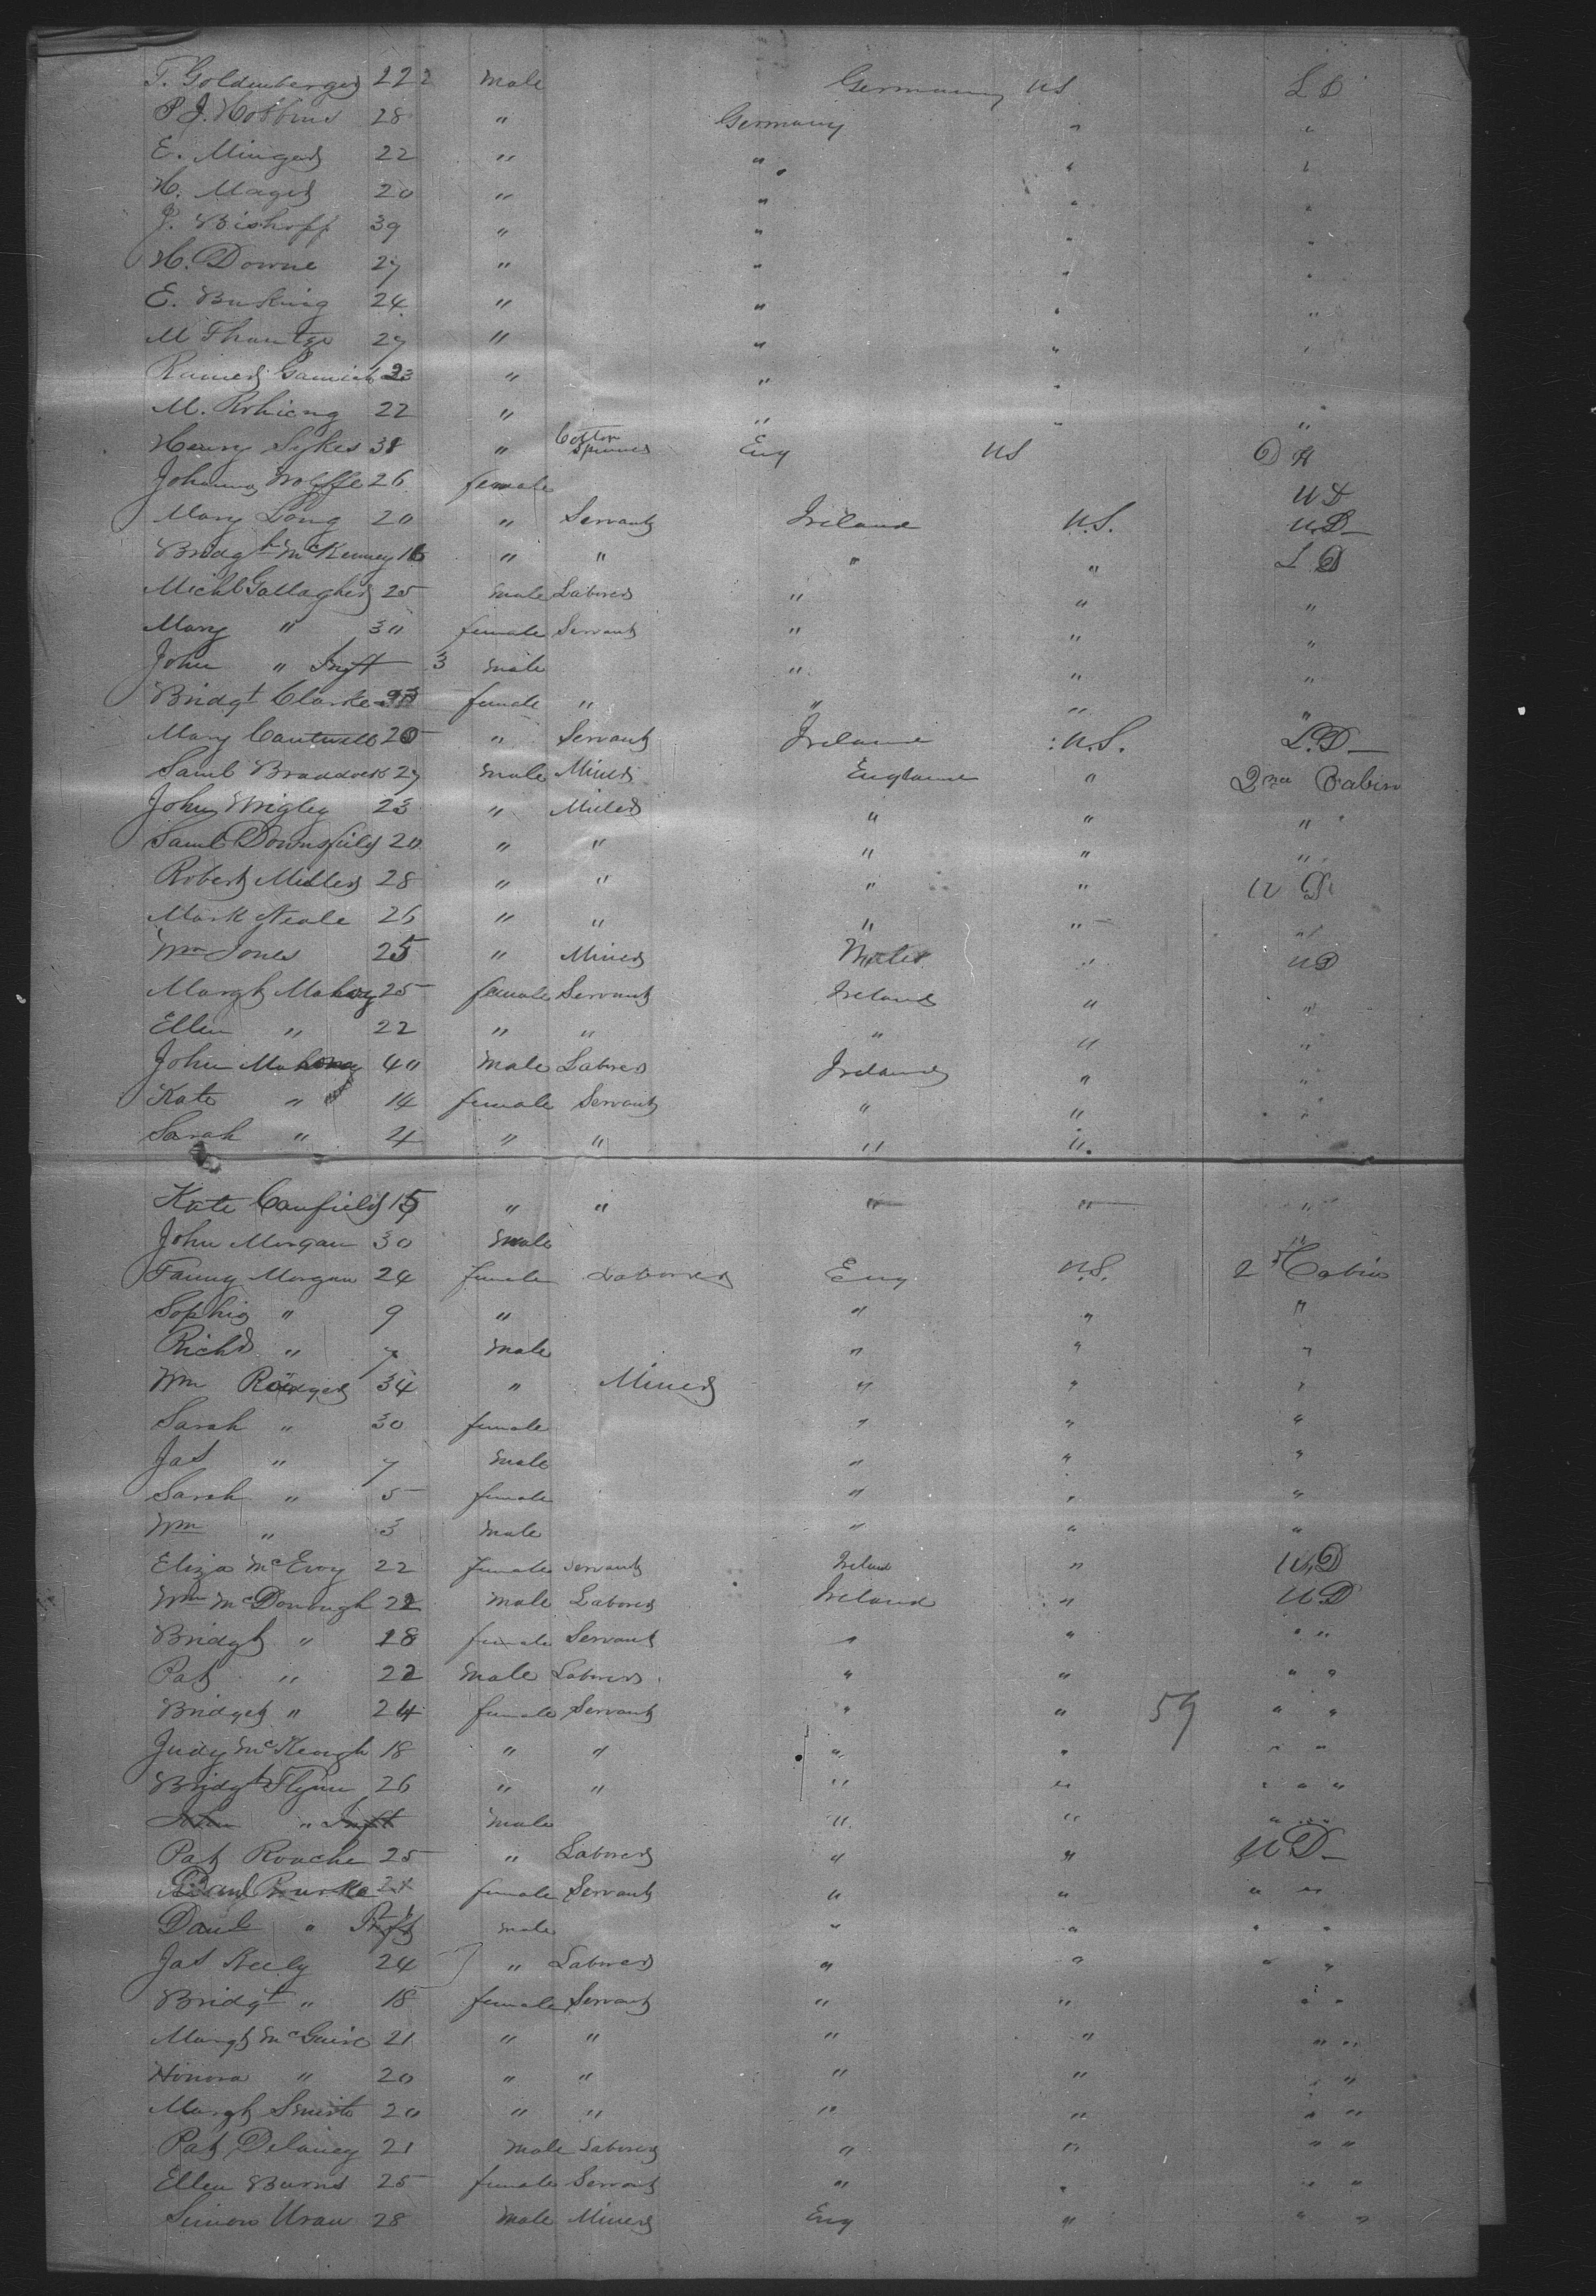 T. Goldenberger 22 2 male Germany US L D
P J. Hobbins 28 " Germany " "
E. Minger 22 " " " "
H. Mager 20 " " " "
J. Bishoff 39 " " " "
H. Downe 27 " " " "
E. Busking 24 " " " "
M Thantge 27 " " " "
23 " " " "
M. 22 " " " "
Henry Sykes 38 " Cotton Spinner Eng US
Johanna Wolffe 26 female U D
Mary Long 20 " Servant Ireland U.S. U.D
Bridgt McKenney 16 " " " " L D
Michl Gallagher 25 male Laborer " " "
Mary " 30 female Servant " " "
John " Inft 3 male " " "
Bridgt Clarke female " " " "
Mary Cantwell 20 " Servant Ireland U.S. L.D
Saml Braddock 27 male Miner England " 2nd Cabin
John Wrigley 23 " Miler " " "
Saml Downsfield 20 " " " " "
Robert Miller 28 " " " " U D
Mark Neale 26 " " " " "
Wm Jones 25 " Miner Wales " U D
Margt Mahony 25 female Servant Ireland " "
Ellen " 22 " " " " "
John Mahony 40 male Laborer Ireland " "
Kate " 14 female Servant " " "
Sarah " 4 " " " "
Kate Canfield 15 " " " " "
John Morgan 30 male
Fanny Morgan 24 female Laborer Eng U.S. 2nd Cabin
Sophia " 9 " " " "
Richd " 7 male " " "
Wm Rodger 34 " Miner " " "
Sarah " 30 female " " "
Jas " 7 male " " "
Sarah " 5 female " " "
Wm " 3 male " " "
Eliza McEvoy 22 female servant Ireland " U.D
Wm McDonough 22 male Laborer Ireland " U D
Bridgt " 18 female Servant " " " "
Pat " 22 male Laborer " " " "
Bridget " 24 female Servant " " 57 " "
Judy McKeough 18 " " " " " "
Bridgt Flynn 26 " " " " " " "
John " Inft male " " " " "
Pat Roache 25 " Laborer " " U D
Rourke female Servant " " " "
Danl " Inft male " " " "
Jas Keely 24 " Laborer " " " "
Bridgt " 18 female Servant " " " "
Margt McGuire 21 " " " " " "
Honora " 20 " " " " " "
Margt Smith 20 " " " " " "
Pat Delaney 21 male Laborer " " " "
Ellen Burns 25 female Servant " " " "
Simon Uran 28 male Miner Eng " " "